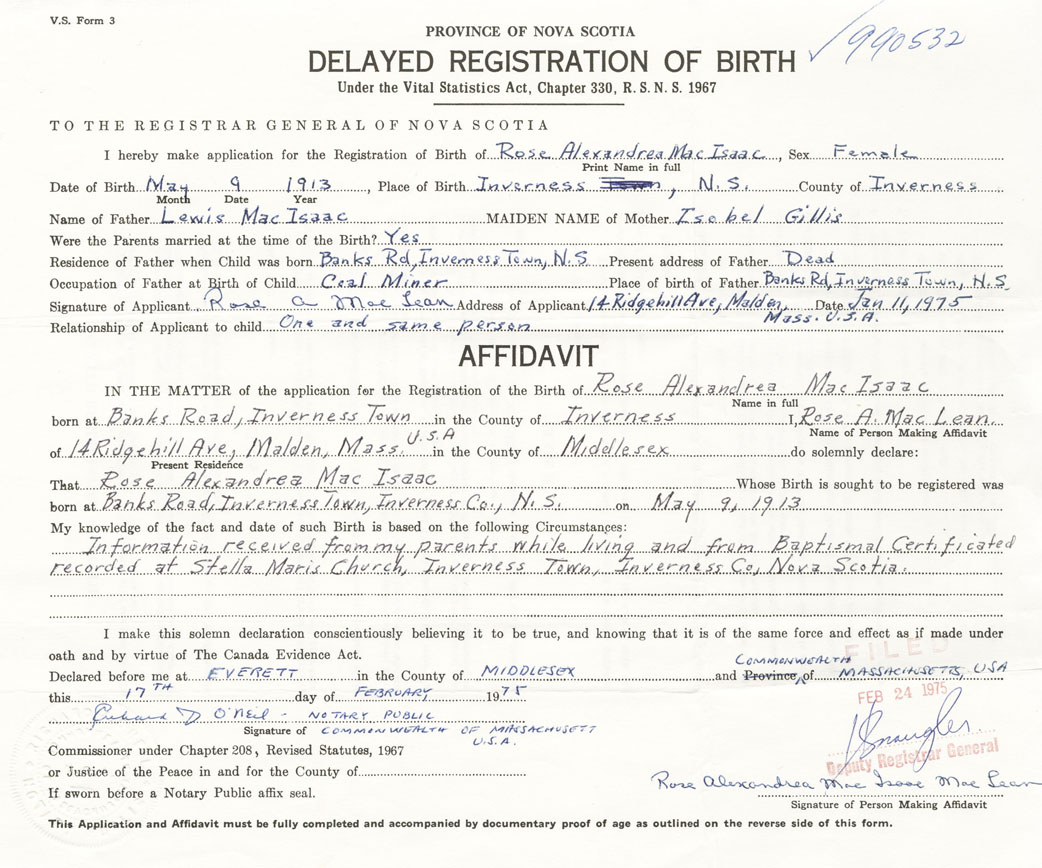 V.S. Form 3
990532
PROVINCE OF NOVA SCOTIA
DELAYED REGISTRATION OF BIRTH
Under the Vital Statistics Act, Chapter 330, R.S.N.S. 1967
TO THE REGISTRAR GENERAL OF NOVA SCOTIA
I hereby make application for the Registration of Birth of Rose Alexandrea Mac Isaac, Sex Female
Print Name in full
Date of Birth May 9 1913, Place of Birth Inverness Town, N.S. County of Inverness
Month Date Year
Name of Father Lewis Mac Isaac MAIDEN NAME of Mother Isobel Gillis
Were the Parents married at the time of the Birth? Yes
Residence of Father when Child was born Banks Rd, Inverness Town, N.S Present address of Father Dead
Occupation of Father at Birth of Child Coal Miner Place of birth of Father Banks Rd, Inverness Town, N.S.
Signature of Applicant Rose A Mac Lean Address of Applicant 14 Ridgehill Ave, Malden, Date Jan 11, 1975
Mass. U.S.A.
Relationship of Applicant to child One and same person
AFFIDAVIT
IN THE MATTER of the application for the Registration of the Birth of Rose Alexandrea Mac Isaac
Name in full
born at Banks Road, Inverness Town in the County of Inverness I, Rose A. Mac Lean
Name of Person Making Affidavit
of 14 Ridgehill Ave, Malden, Mass. U.S.A in the County of Middlesex do solemnly declare:
Present Residence
That Rose Alexandrea Mac Isaac Whose Birth is sought to be registered was
born at Banks Road, Inverness Town, Inverness Co., N.S. on May 9, 1913
My knowledge of the fact and date of such Birth is based on the following Circumstances:
Information received from my parents while living and from Baptismal Certificated
recorded at Stella Maris Church, Inverness Town, Inverness Co, Nova Scotia.
I make this solemn declaration conscientiously believing it to be true, and knowing that it is of the same force and effect as if made under
oath and by virtue of The Canada Evidence Act.
FILED
COMMONWEALTH
Declared before me at EVERETT in the County of MIDDLESEX and Province of MASSACHUSETTS, USA
this 17TH day of FEBRUARY 1975
FEB 24 1975
Richard D O'Neil - NOTARY PUBLIC
Signature of COMMONWEALTH OF MASSACHUSETT
U.S.A.
Commissioner under Chapter 208, Revised Statutes, 1967
Deputy Registrar General
or Justice of the Peace in and for the County of
Rose Alexandrea Mac Isaac Mac Lean
If sworn before a Notary Public affix seal.
Signature of Person Making Affidavit
This Application and Affidavit must be fully completed and accompanied by documentary proof of age as outlined on the reverse side of this form.